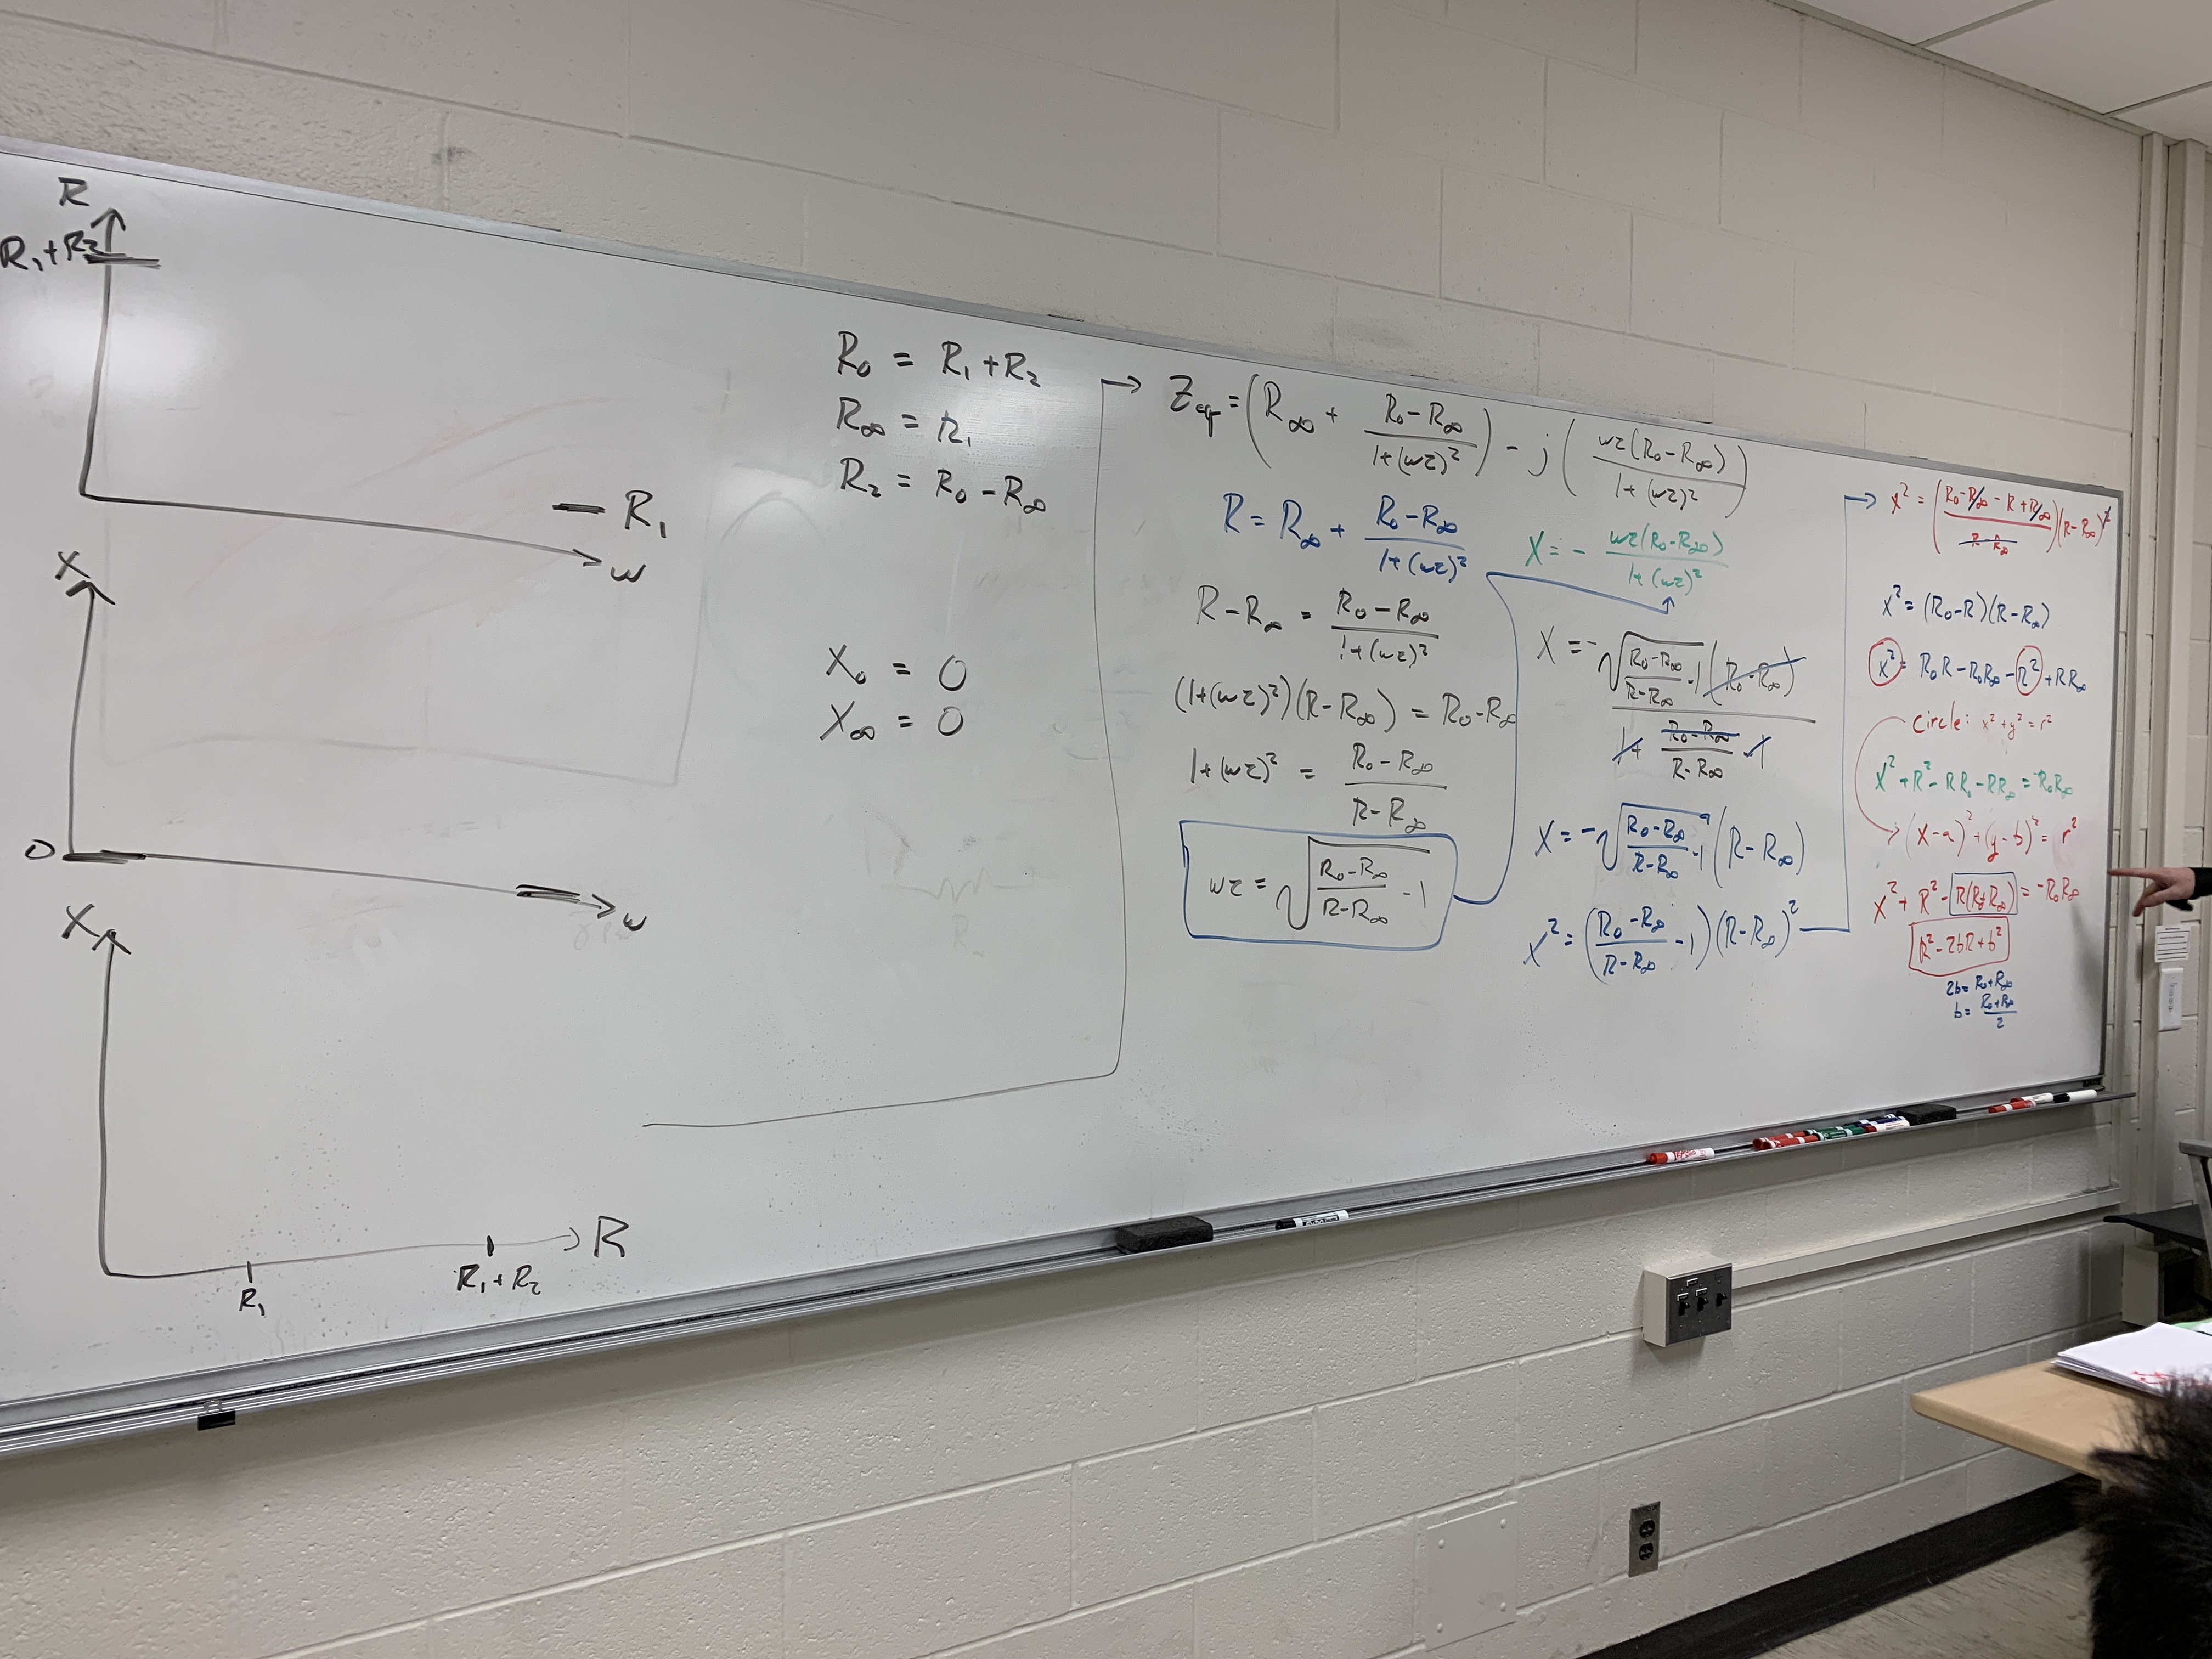 R
R₁+R₂
R₁
w
X
0
w
X
R₁
R₁+R₂
R
R₀ = R₁+R₂
R∞ = R₁
R₂ = R₀-R∞
X₀ = 0
X∞ = 0
→ Zeq = (R∞ + (R₀-R∞)/(1+(wτ)²)) - j(wτ(R₀-R∞)/(1+(wτ)²))
R = R∞ + (R₀-R∞)/(1+(wτ)²)
R-R∞ = (R₀-R∞)/(1+(wτ)²)
(1+(wτ)²)(R-R∞) = R₀-R∞
1+(wτ)² = (R₀-R∞)/(R-R∞)
wτ = √((R₀-R∞)/(R-R∞) - 1)
X = - wτ(R₀-R∞)/(1+(wτ)²)
X = -√((R₀-R∞)/(R-R∞) - 1)(R₀-R∞)/(1+(R₀-R∞)/(R-R∞) - 1)
X = -√((R₀-R∞)/(R-R∞) - 1)(R-R∞)
X² = ((R₀-R∞)/(R-R∞) - 1)(R-R∞)²
→ X² = ((R₀-R∞-R+R∞)/(R-R∞))(R-R∞)²
X² = (R₀-R)(R-R∞)
X² = R₀R-R₀R∞-R²+RR∞
Circle: x²+y²=r²
X²+R²-RR₀-RR∞=-R₀R∞
(x-a)²+(y-b)²=r²
X²+R²-R(R₀+R∞)=-R₀R∞
R²-2bR+b²
2b=R₀+R∞
b=(R₀+R∞)/2